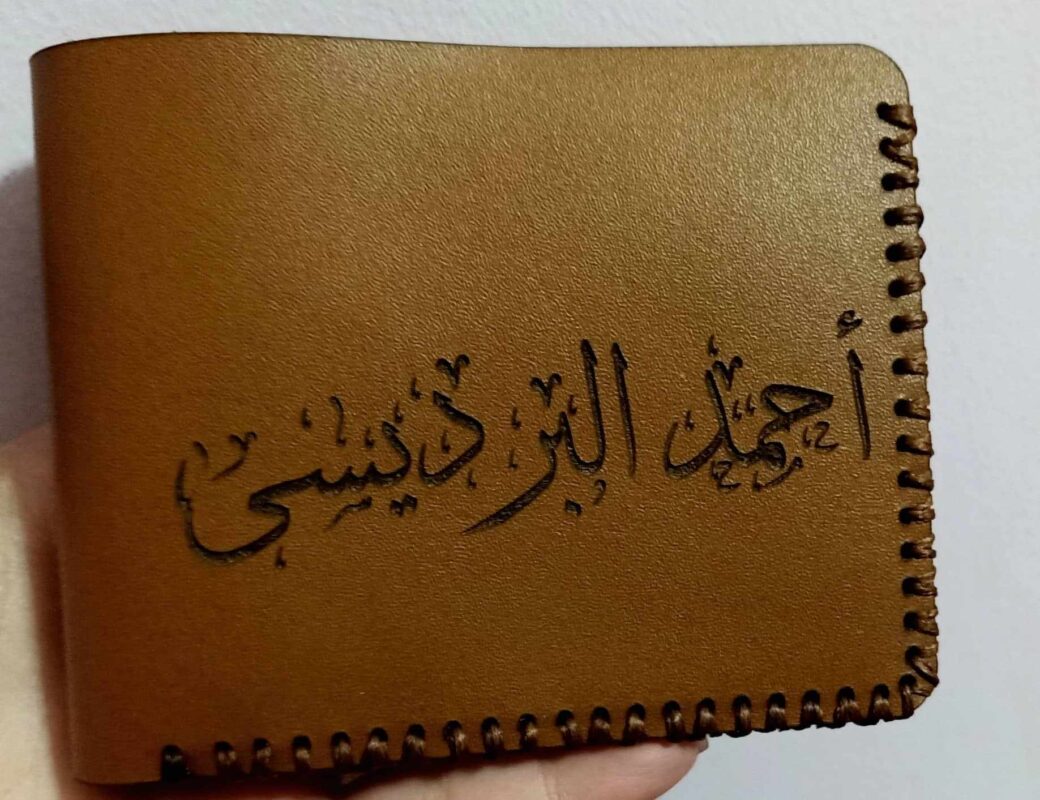 أحمد البرديسى